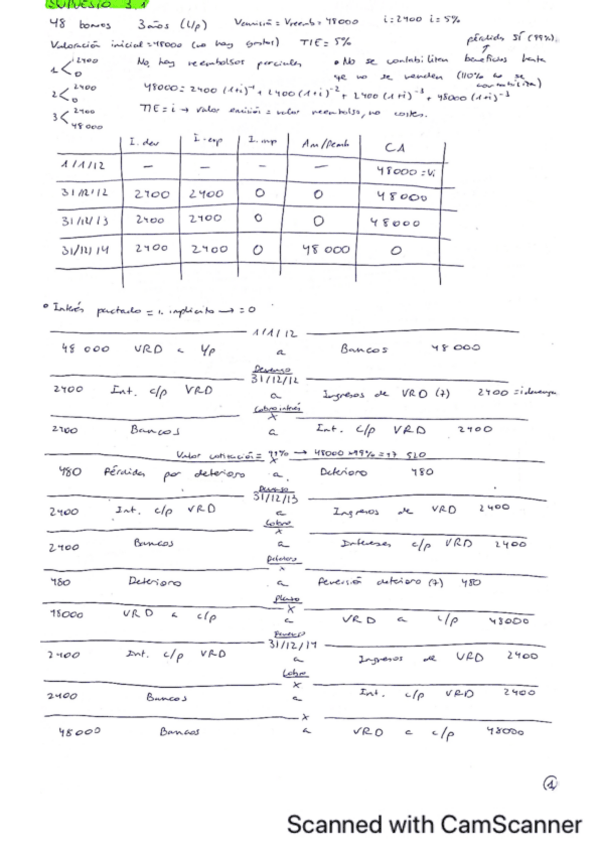 SUPUESTO 3.1
48 bonos 3 años (L/p) Vemisión = Vreemb = 48000 i = 2400 i = 5%
Valoración inicial = 48000 (no hay gastos) TIE = 5% pérdida SÍ (99%).
1 < 2400 0 No hay reembolsos parciales • No se contabilizan beneficios hasta
2 < 2400 0 que no se venden (110% no se contabiliza)
48000 = 2400 (1+i)⁻¹ + 2400 (1+i)⁻² + 2400 (1+i)⁻³ + 48000 (1+i)⁻³
3 < 2400 48000 TIE = i → valor emisión = valor reembolso, no costes.
I. dev I. exp I. imp Am/Reemb CA
1/1/12 — — — — 48000 = Vi
31/12/12 2400 2400 0 0 48000
31/12/13 2400 2400 0 0 48000
31/12/14 2400 2400 0 48000 0
• Interés pactado = i. implícito → = 0
1/1/12
48 000 VRD a L/p a Bancos 48 000
Devengo
31/12/12
2400 Int. c/p VRD a Ingresos de VRD (7) 2400 = i devenga
Cobro interés
X
2400 Bancos a Int. c/p VRD 2400
Valor cotización = 99% → 48000 · 99% = 47 520
X
480 Pérdida por deterioro a Deterioro 480
Devengo
31/12/13
2400 Int. c/p VRD a Ingresos de VRD 2400
Cobro
X
2400 Bancos a Intereses c/p VRD 2400
Deterioro
X
480 Deterioro a Reversión deterioro (7) 480
Plazo
X
48000 VRD a c/p a VRD a L/p 48000
Devengo
31/12/14
2400 Int. c/p VRD a Ingresos de VRD 2400
Cobro
X
2400 Bancos a Int. c/p VRD 2400
X
48000 Bancos a VRD a c/p 48000
1
Scanned with CamScanner